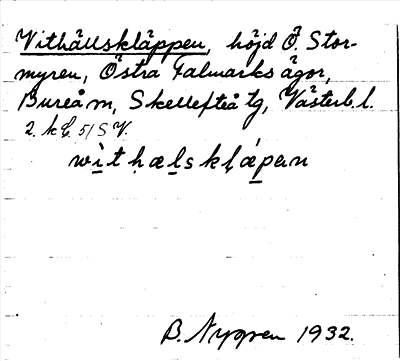 Vithällskläppen, höjd Ö. Stor-
myren, Östra Falmarks ägor,
Bureå sn, Skellefteå tg, Västerb. l.
2. kE. 51 S V.
wit hæls klæpen
B. Nygren 1932.